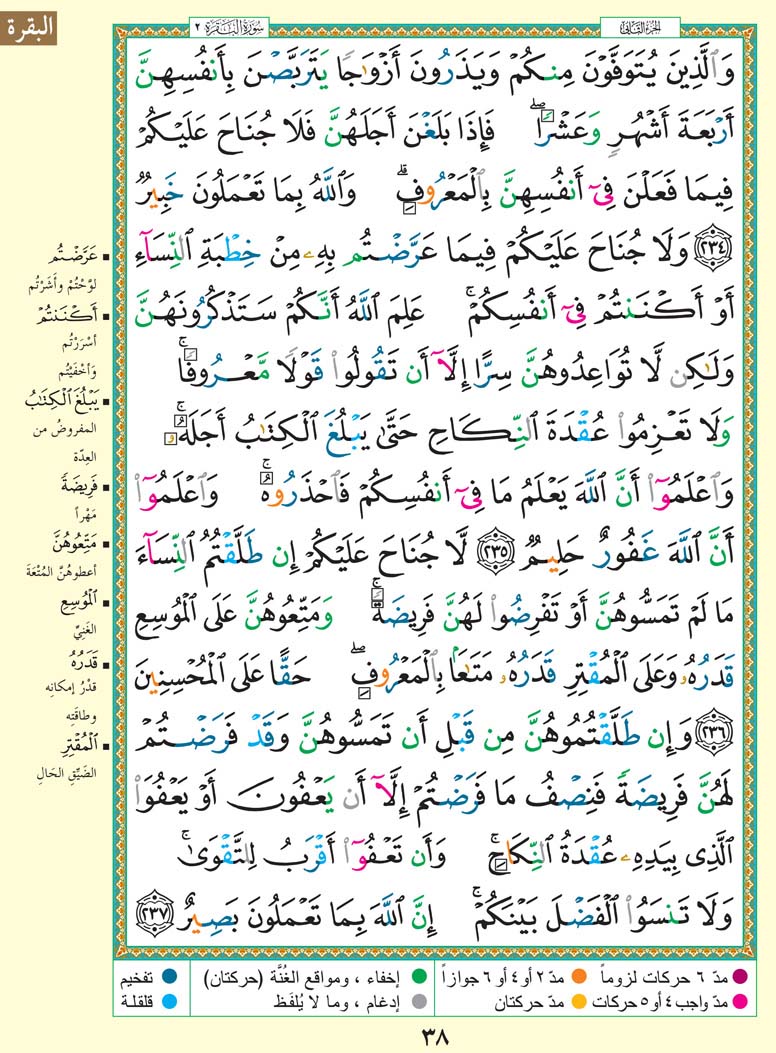 البقرة
الجزء الثاني
سورة البقرة ٢
وَٱلَّذِينَ يُتَوَفَّوْنَ مِنكُمْ وَيَذَرُونَ أَزْوَٰجًا يَتَرَبَّصْنَ بِأَنفُسِهِنَّ
أَرْبَعَةَ أَشْهُرٍ وَعَشْرًا ۖ فَإِذَا بَلَغْنَ أَجَلَهُنَّ فَلَا جُنَاحَ عَلَيْكُمْ
فِيمَا فَعَلْنَ فِىٓ أَنفُسِهِنَّ بِٱلْمَعْرُوفِ ۗ وَٱللَّهُ بِمَا تَعْمَلُونَ خَبِيرٌ
٢٣٤ وَلَا جُنَاحَ عَلَيْكُمْ فِيمَا عَرَّضْتُم بِهِۦ مِنْ خِطْبَةِ ٱلنِّسَآءِ
أَوْ أَكْنَنتُمْ فِىٓ أَنفُسِكُمْ ۚ عَلِمَ ٱللَّهُ أَنَّكُمْ سَتَذْكُرُونَهُنَّ
وَلَٰكِن لَّا تُوَاعِدُوهُنَّ سِرًّا إِلَّآ أَن تَقُولُوا۟ قَوْلًا مَّعْرُوفًا ۚ
وَلَا تَعْزِمُوا۟ عُقْدَةَ ٱلنِّكَاحِ حَتَّىٰ يَبْلُغَ ٱلْكِتَٰبُ أَجَلَهُۥ ۚ
وَٱعْلَمُوٓا۟ أَنَّ ٱللَّهَ يَعْلَمُ مَا فِىٓ أَنفُسِكُمْ فَٱحْذَرُوهُ ۚ وَٱعْلَمُوٓا۟
أَنَّ ٱللَّهَ غَفُورٌ حَلِيمٌ ٢٣٥ لَّا جُنَاحَ عَلَيْكُمْ إِن طَلَّقْتُمُ ٱلنِّسَآءَ
مَا لَمْ تَمَسُّوهُنَّ أَوْ تَفْرِضُوا۟ لَهُنَّ فَرِيضَةً ۚ وَمَتِّعُوهُنَّ عَلَى ٱلْمُوسِعِ
قَدَرُهُۥ وَعَلَى ٱلْمُقْتِرِ قَدَرُهُۥ مَتَٰعًۢا بِٱلْمَعْرُوفِ ۖ حَقًّا عَلَى ٱلْمُحْسِنِينَ
٢٣٦ وَإِن طَلَّقْتُمُوهُنَّ مِن قَبْلِ أَن تَمَسُّوهُنَّ وَقَدْ فَرَضْتُمْ
لَهُنَّ فَرِيضَةً فَنِصْفُ مَا فَرَضْتُمْ إِلَّآ أَن يَعْفُونَ أَوْ يَعْفُوَا۟
ٱلَّذِى بِيَدِهِۦ عُقْدَةُ ٱلنِّكَاحِ ۚ وَأَن تَعْفُوٓا۟ أَقْرَبُ لِلتَّقْوَىٰ ۚ
وَلَا تَنسَوُا۟ ٱلْفَضْلَ بَيْنَكُمْ ۚ إِنَّ ٱللَّهَ بِمَا تَعْمَلُونَ بَصِيرٌ ٢٣٧
عَرَّضْتُم
لوّحْتُمْ وأشَرْتُم
أَكْنَنتُمْ
أسْرَرْتُم
وَأخْفَيْتُم
يَبْلُغَ ٱلْكِتَٰبُ
المفروضُ من
العِدّة
فَرِيضَةً
مَهْراً
مَتِّعُوهُنَّ
أعطوهُنّ المُتْعَةَ
ٱلْمُوسِعِ
الغَنِيِّ
قَدَرُهُ
قدْرُ إمكانِه
وطاقتِه
ٱلْمُقْتِرِ
الضّيِّقِ الحَالِ
مدّ ٦ حركات لزوماً
مدّ ٢ أو ٤ أو ٦ جوازاً
إخفاء ، ومواقع الغُنَّة (حركتان)
تفخيم
مدّ واجب ٤ أو ٥ حركات
مدّ حركتان
إدغام ، وما لا يُلفَظ
قلقلة
٣٨